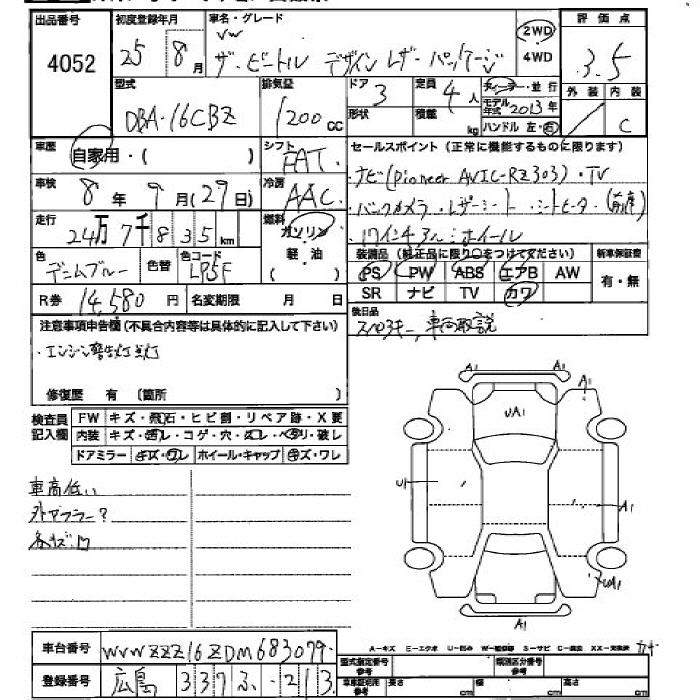 出品番号 初度登録年月 車名・グレード 評価点
4052 25年 8月 VW 2WD 3.5
ザ・ビートル デザイン レザーパッケージ 4WD
型式 排気量 ドア 3 定員 4人 ディーラー・並行 外装 内装
DBA-16CBZ 1200cc 形状 積載 kg モデル年式 2013年 C
ハンドル 左・右
車歴 自家用・( ) シフト FAT セールスポイント (正常に機能するものに限ります)
車検 8年 9月(27日) 冷房 AAC ・ナビ(Pioneer AVIC-RZ303)・TV
・バックカメラ・レザーシート・シートヒーター(前席)
走行 24万7千835km 燃料 ガソリン ・17インチアルミホイール
軽・油
色 デニムブルー 色替 色コード LP5F 装備品 (純正品に限り○をつけてください) 新車保証書
PS PW ABS エアB AW 有・無
R券 14,580円 名変期限 月 日 SR ナビ TV カワ
注意事項申告欄(不具合内容等は具体的に記入して下さい) 後日品
スペアキー、車両取説
・エンジン警告灯点灯
修復歴 有 (箇所 )
検査員記入欄 FW キズ・飛石・ヒビ割・リペア跡・X要
内装 キズ・汚レ・コゲ・穴・スレ・ヘタリ・破レ
ドアミラー キズ・ワレ ホイール・キャップ キズ・ワレ
A1
A1
UA1
車高低い U1 A1
外マフラー?
各キズ凹 UA1
A1
A-キズ E-エクボ U-凹み W-補修跡 S-サビ C-腐食 XX-交換済
車台番号 WVWZZZ16ZDM683079 型式指定番号 類別区分番号
登録番号 広島 337 ふ ・213 参考 長さ cm 幅 cm 高さ cm